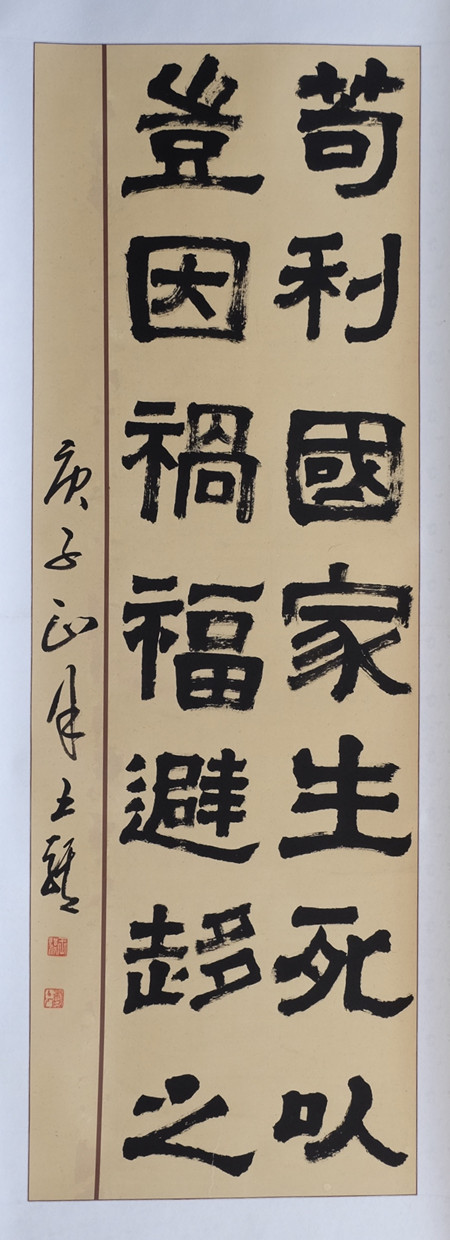 苟利國家生死以
豈因禍福避趍之
庚子正月士龍